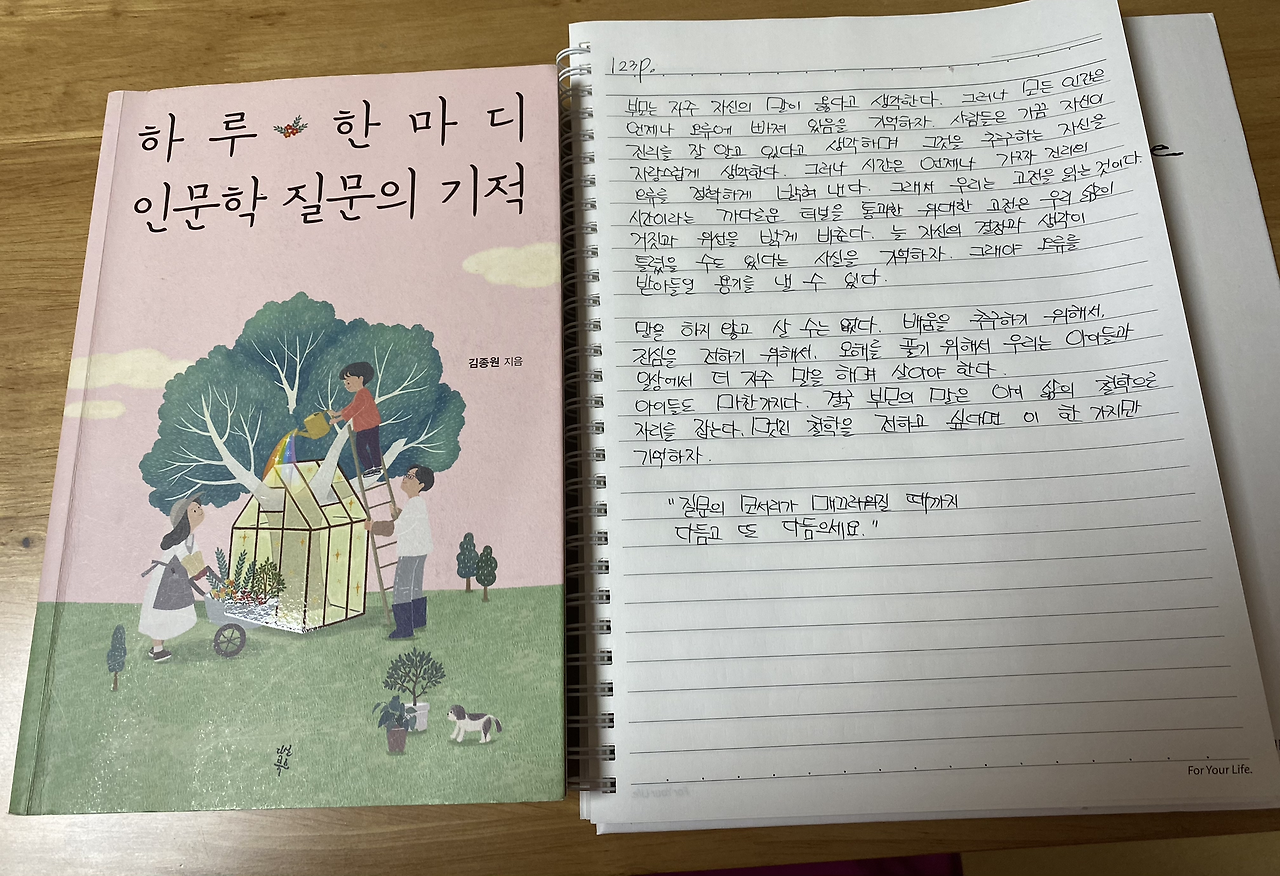 하루 한마디
인문학 질문의 기적
김종원 지음
다산
북스
123p.
부모는 자주 자신의 말이 옳다고 생각한다. 그러나 모든 인간은
언제나 오류에 빠져 있음을 기억하자. 사람들은 가끔 자신이
진리를 잘 알고 있다고 생각하며 그것을 추구하는 자신을
자랑스럽게 생각한다. 그러나 시간은 언제나 가짜 진리의
오류를 정확하게 밝혀 낸다. 그래서 우리는 고전을 읽는 것이다.
시간이라는 까다로운 터널을 통과한 위대한 고전은 우리 삶의
거짓과 위선을 밝게 비춘다. 늘 자신의 결정과 생각이
틀렸을 수도 있다는 사실을 기억하자. 그래야 오류를
받아들일 용기를 낼 수 있다.
말을 하지 않고 살 수는 없다. 배움을 추구하기 위해서,
진심을 전하기 위해서, 오해를 풀기 위해서 우리는 아이들과
일상에서 더 자주 말을 하며 살아야 한다.
아이들도 마찬가지다. 결국 부모의 말은 아이 삶의 철학으로
자리를 잡는다. 멋진 철학을 전하고 싶다면 이 한 가지만
기억하자.
"질문의 모서리가 매끄러워질 때까지
다듬고 또 다듬으세요."
For Your Life.